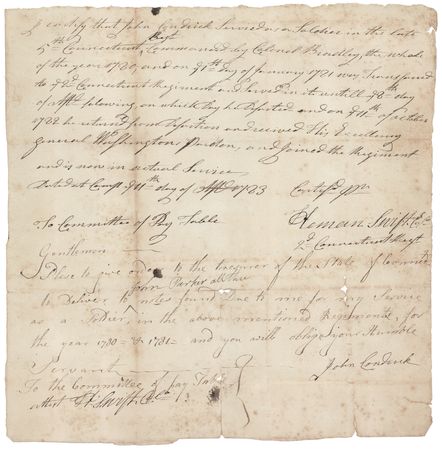 I certify that John Condrick Served as a Soldier in the late
5th Connecticut Regt Commanded by Colonel Bradley, the whole
of the year 1780, and on ye 1st day of January 1781 was transfered
to ye 2d Connecticut Regiment and Served in it untill ye 8th day
of folowing, on which Day he Deserted and on ye 11th of october
1782 he returned from Desertion and received His Excellency
general Washingtons Pardon, and joined the Regiment
and is now in actual Service
Dated at Camp ye 11th day of 1783
To Committee of Pay Table
Heman Swift Col
2d Connecticut Regt
Gentlemen
Please to give order to the treasurer of the State of Connect
to Deliver to John Parker all the notes found Due to me for my Service
as a Soldier, in the above mentioned Regiments, for
the year 1780 & 1781 and you will oblige your Humble
Servant
John Condrick
To the Committee of pay Table
attest H Swift Col